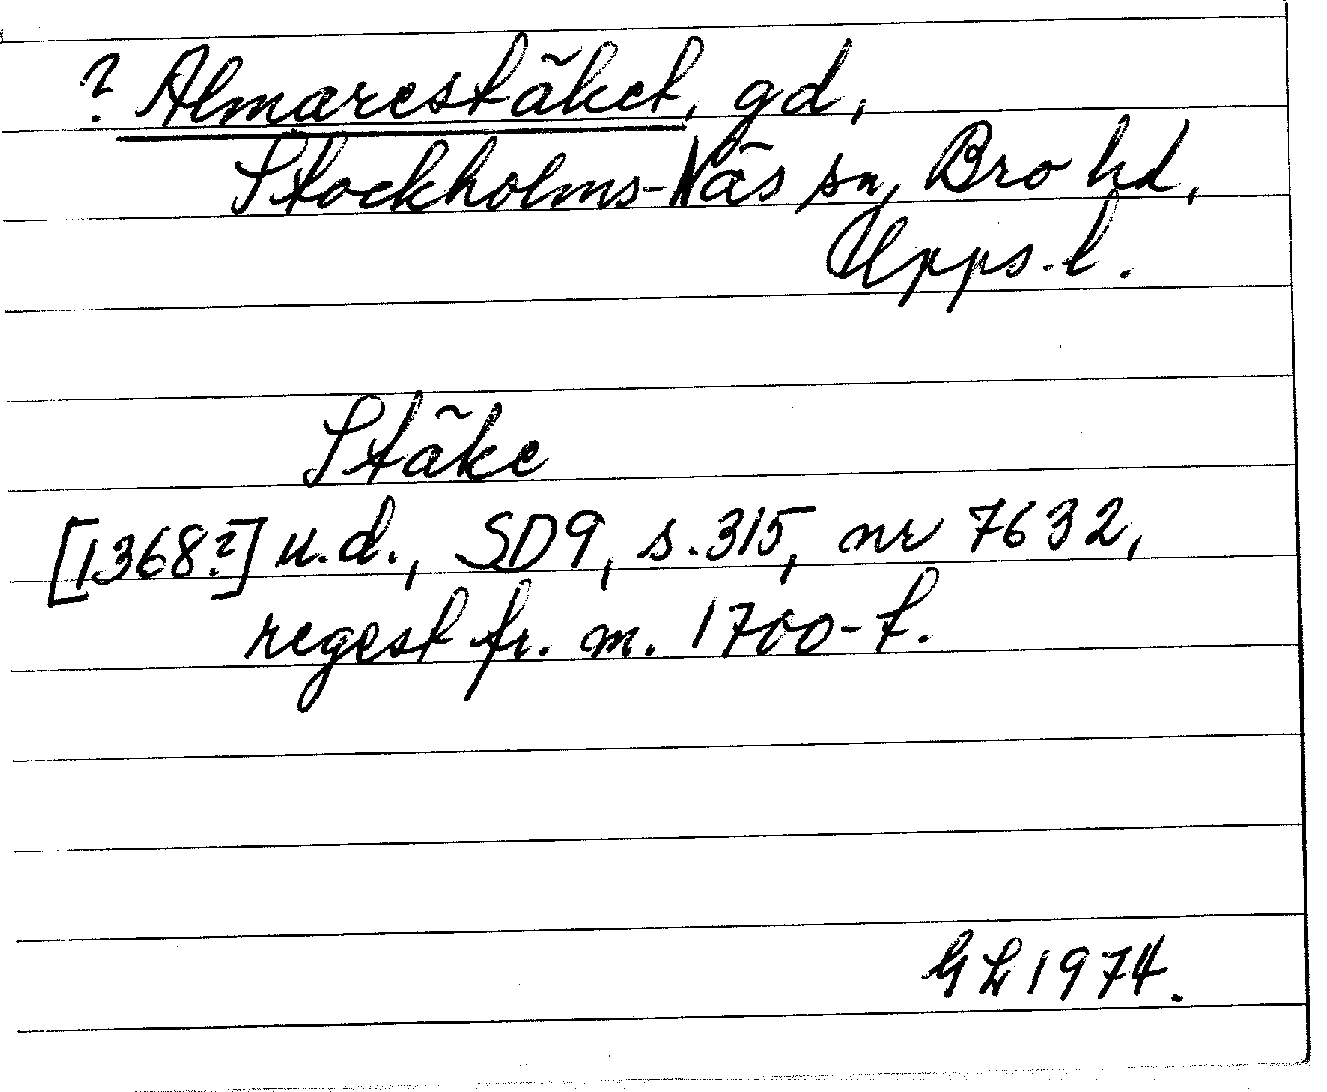 ? Almarestäket, gd,
Stockholms-Näs sn, Bro hd,
Upps. l.
Stäke
[1368?] u.d., SD9, s. 315, nr 7632,
regest fr. m. 1700-t.
1974.